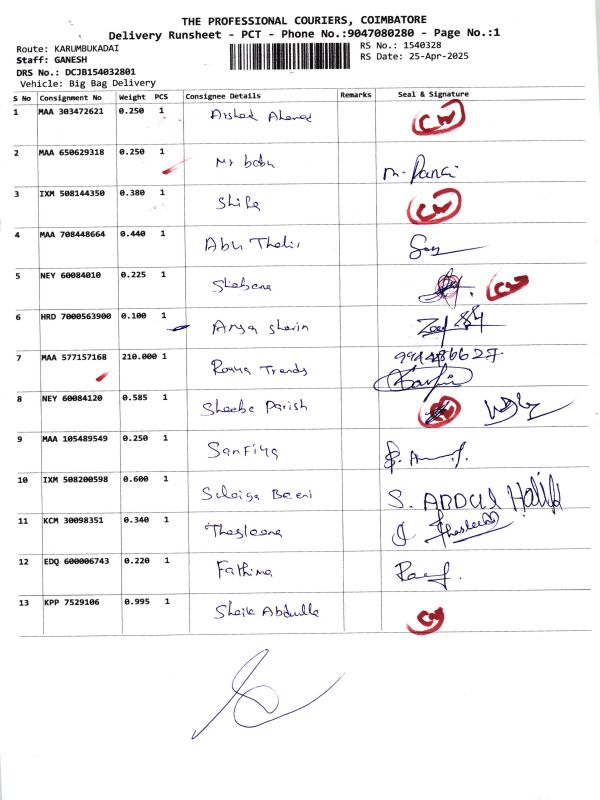 THE PROFESSIONAL COURIERS, COIMBATORE
Delivery Runsheet - PCT - Phone No.:9047080280 - Page No.:1
Route: KARUMBUKADAI
RS No.: 1540328
Staff: GANESH
RS Date: 25-Apr-2025
DRS No.: DCJB154032801
Vehicle: Big Bag Delivery
S No Consignment No Weight PCS Consignee Details Remarks Seal & Signature
1 MAA 303472621 0.250 1 Arshad Ahamed
2 MAA 650629318 0.250 1 Mr babu
3 IXM 508144350 0.380 1 Shifa
4 MAA 708448664 0.440 1 Abu Thahir
5 NEY 60084010 0.225 1 Shabana
6 HRD 7000563900 0.100 1 Ansa sherin
7 MAA 577157168 210.000 1 Trends 9944866627
8 NEY 60084120 0.585 1 Sheeba Parish
9 MAA 105489549 0.250 1 Sanfiya
10 IXM 508200598 0.600 1 Sulaiga Beeni S. ABDUL Halik
11 KCM 30098351 0.340 1 Thasleena
12 EDQ 600006743 0.220 1 Fathima
13 KPP 7529106 0.995 1 Shaik Abdulla